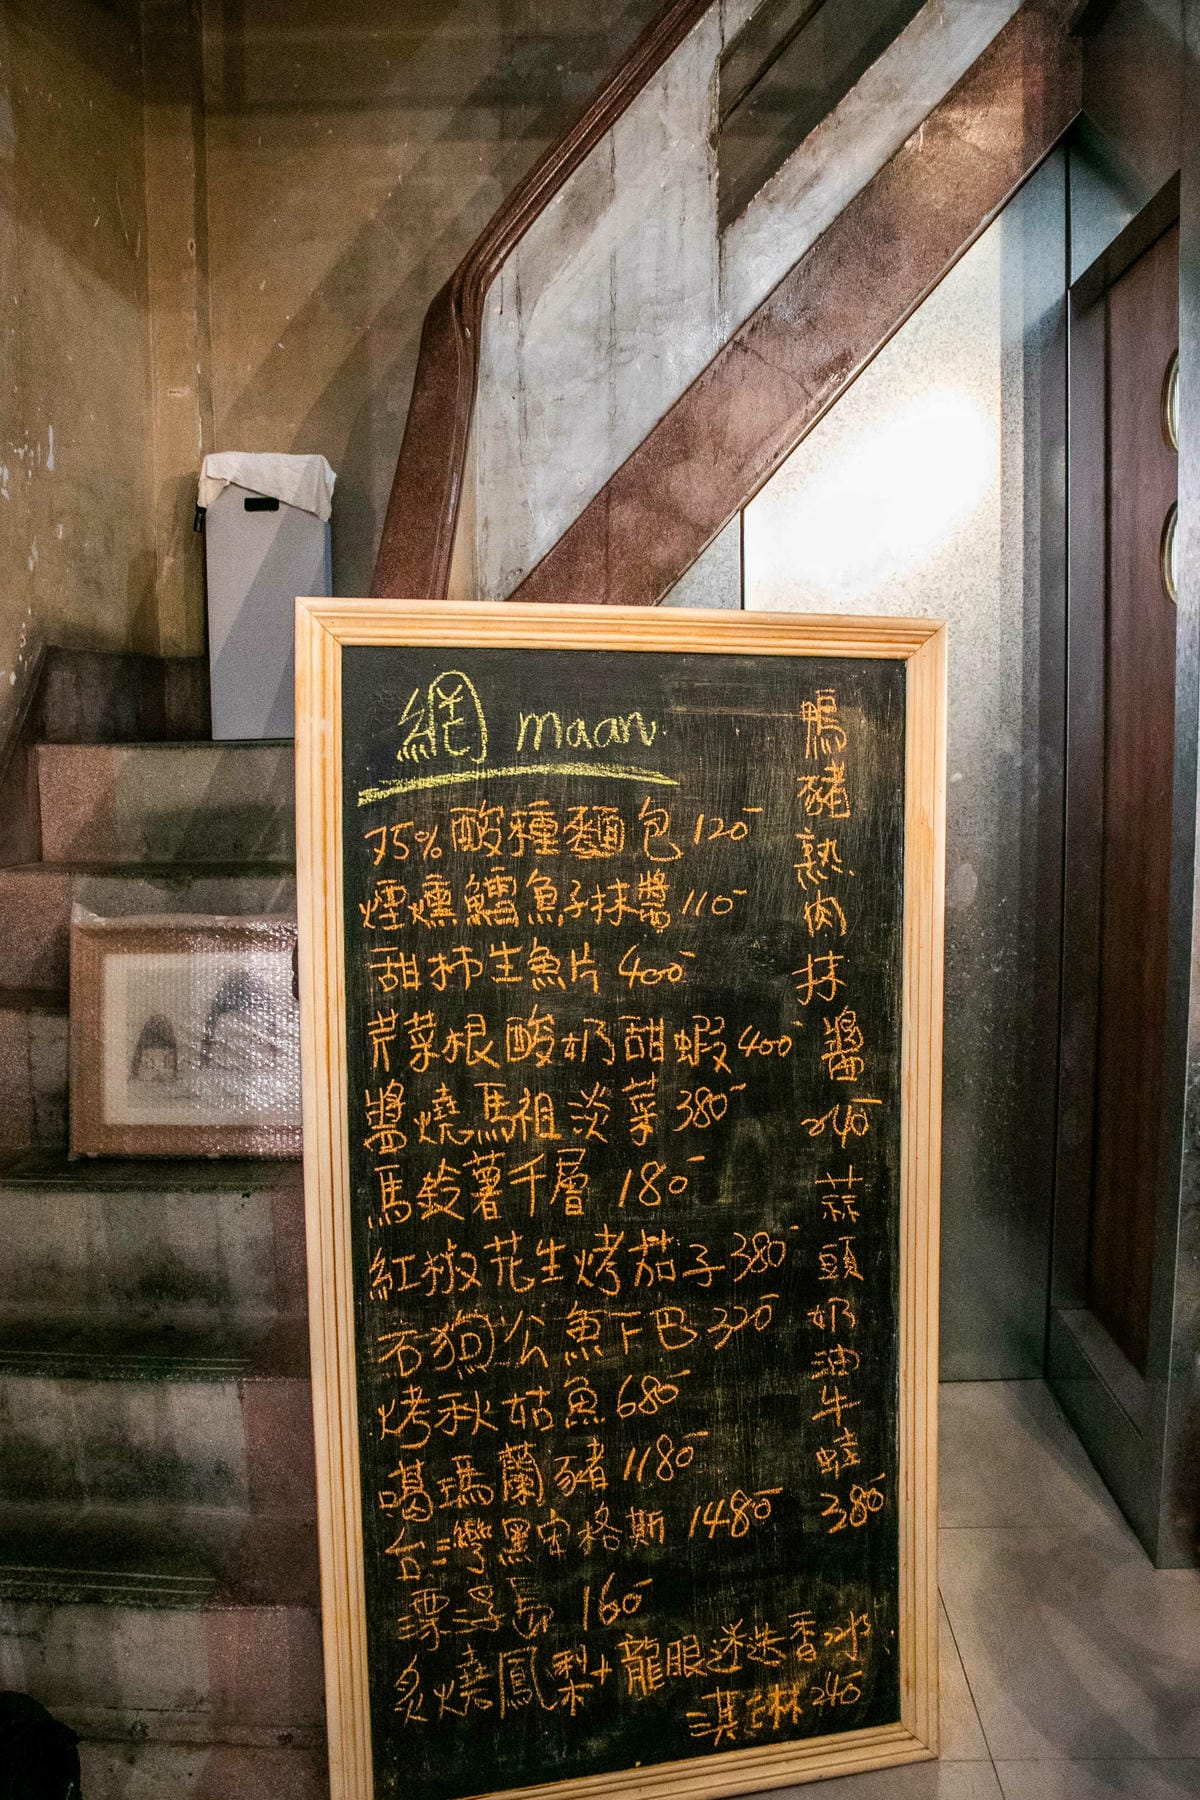 網 maan
75%酸種麵包 120
煙燻鱈魚子抹醬 110
甜柿生魚片 400
芹菜根酸奶甜蝦 400
醬燒馬祖淡菜 380
馬鈴薯千層 180
紅椒花生烤茄子 380
石狗公魚下巴 320
烤秋姑魚 680
噶瑪蘭豬 1180
台灣黑安格斯 1480
漂浮島 160
炙燒鳳梨+龍眼迷迭香冰
淇淋 240
鴨豬熟肉抹醬 240
蒜頭奶油牛蛙 380